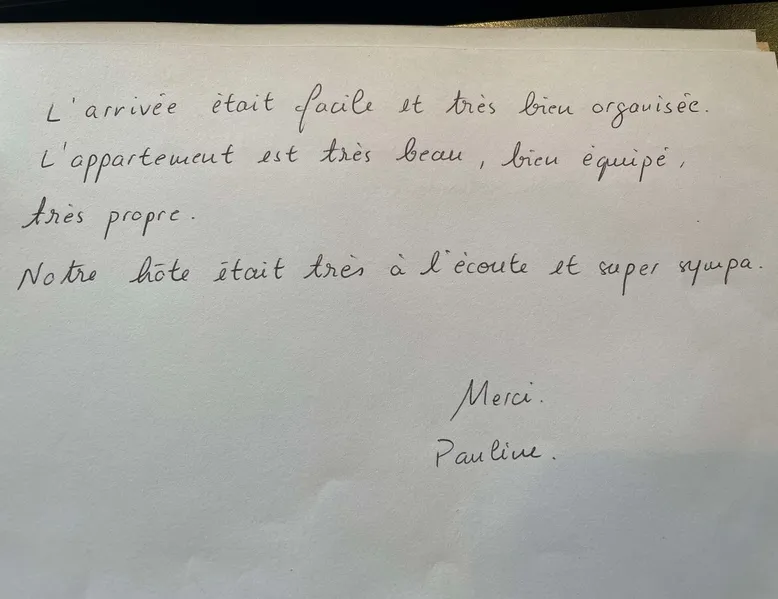 L'arrivée était facile et très bien organisée.
L'appartement est très beau, bien équipé,
très propre.
Notre hôte était très à l'écoute et super sympa.
Merci.
Pauline.